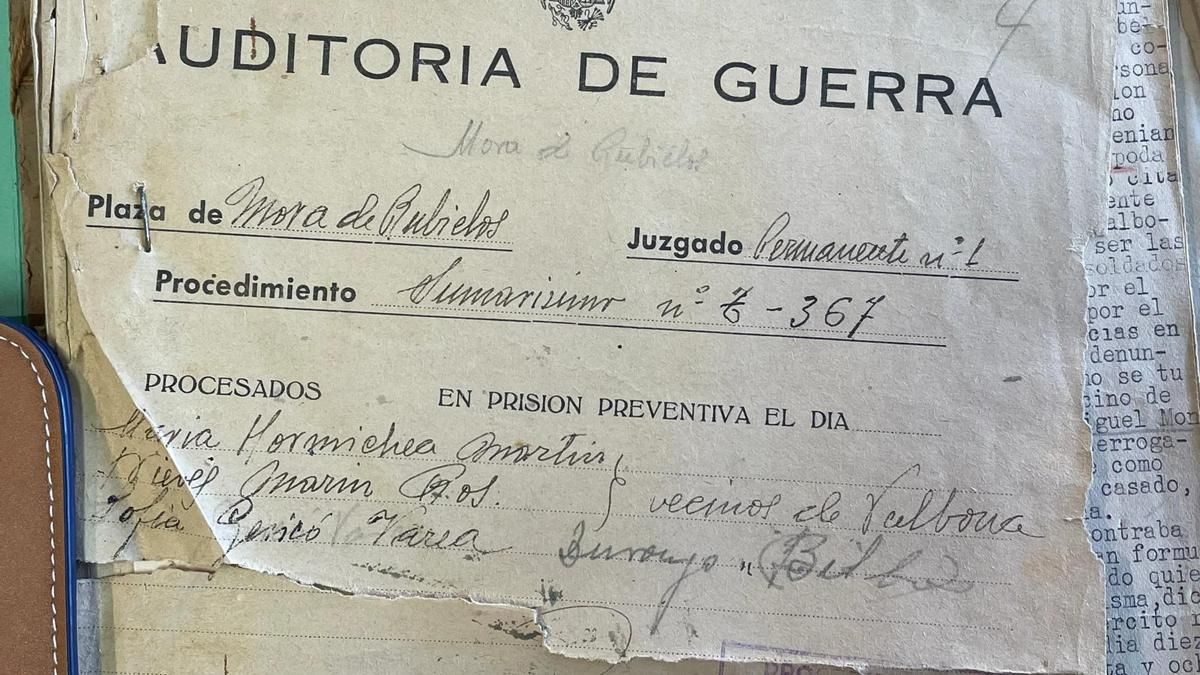 4
AUDITORIA DE GUERRA
Mora de Rubielos
Plaza de Mora de Rubielos
Juzgado Permanente nº 1
Procedimiento Sumarisimo nº t-367
PROCESADOS EN PRISION PREVENTIVA EL DIA
Maria Hormichea Martin
Nieves Marin Ros. } vecinos de Valbona
Sofia Pericó Varea Durango " Bilbao
un-
be-
co-
sona
ion
no
enian
poda
cita
ente
albo-
ser las
soldados
or el
por el
cias en
denun-
no se tu
cino de
guel Mon
erroga-
como
casado,
a.
ontraba
n formu
do quie
sma,dic
rcito r
dia diez
ta y och